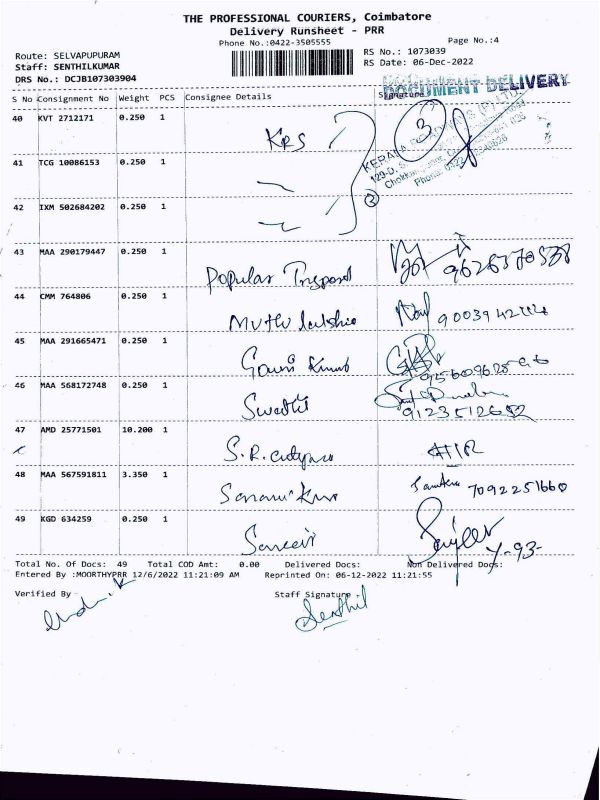 THE PROFESSIONAL COURIERS, Coimbatore
Delivery Runsheet - PRR
Phone No.:0422-3505555
Page No.:4
Route: SELVAPUPURAM
RS No.: 1073039
Staff: SENTHILKUMAR
RS Date: 06-Dec-2022
DRS No.: DCJB107303904
DOCUMENT DELIVERY
S No Consignment No Weight PCS Consignee Details Signature
40 KVT 2712171 0.250 1
KRS
3
41 TCG 10086153 0.250 1
42 IXM 502684202 0.250 1
2
43 MAA 290179447 0.250 1
Popular
44 CMM 764806 0.250 1
Muthu
45 MAA 291665471 0.250 1
46 MAA 568172748 0.250 1
Swathi
9123512652
47 AMD 25771501 10.200 1
S.R.
48 MAA 567591811 3.350 1
7092251660
49 KGD 634259 0.250 1
Y-93-
Total No. Of Docs: 49 Total COD Amt: 0.00 Delivered Docs: Non Delivered Docs:
Entered By :MOORTHYPRR 12/6/2022 11:21:09 AM Reprinted On: 06-12-2022 11:21:55
Verified By Staff Signature
Senthil